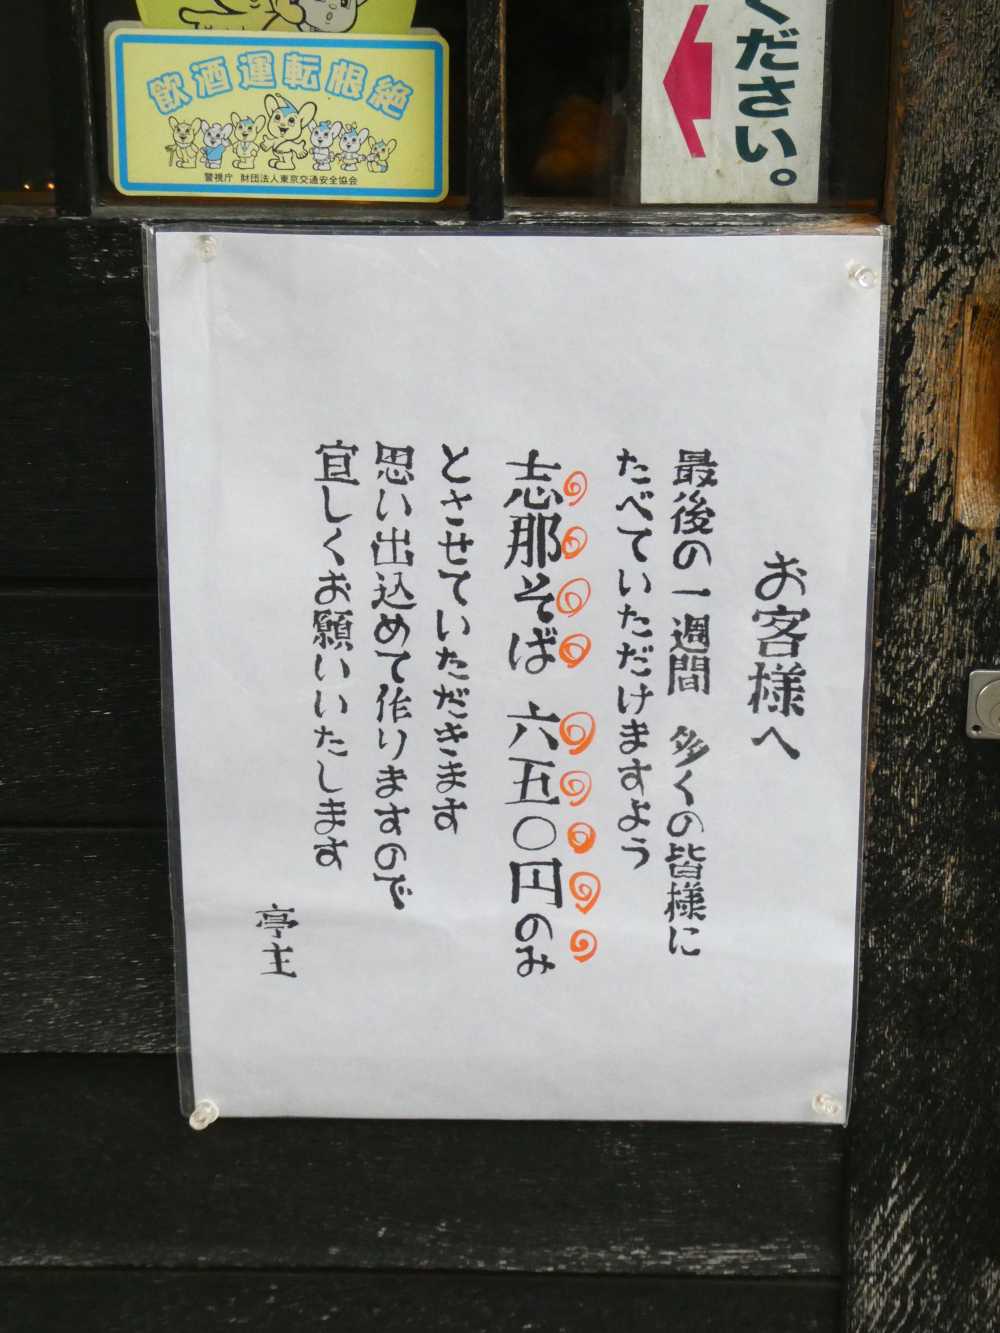 飲酒運転根絶
警視庁 財団法人東京交通安全協会
ください。
お客様へ
最後の一週間 多くの皆様に
たべていただけますよう
志那そば 六五〇円のみ
とさせていただきます
思い出込めて作りますので
宜しくお願いいたします
亭主